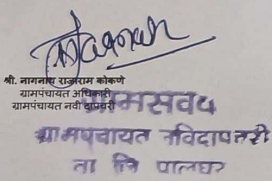 श्री. नागनाथ राजाराम कोकणे
ग्रामपंचायत अधिकारी
ग्रामपंचायत नवी दापचरी
ग्रामसेवक
ग्रामपंचायत नविदापचरी
ता जि पालघर